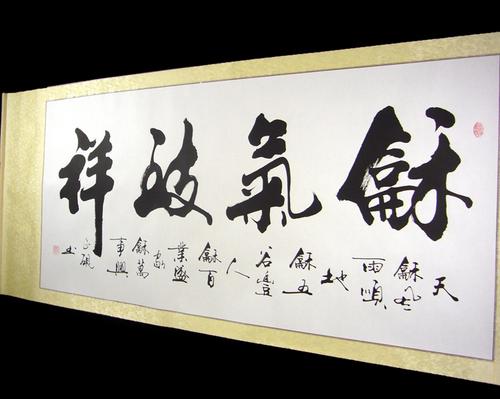 龢氣致祥
天
龢風
雨順
地
龢五
谷豐
人
龢百
業盛
家
龢萬
事興